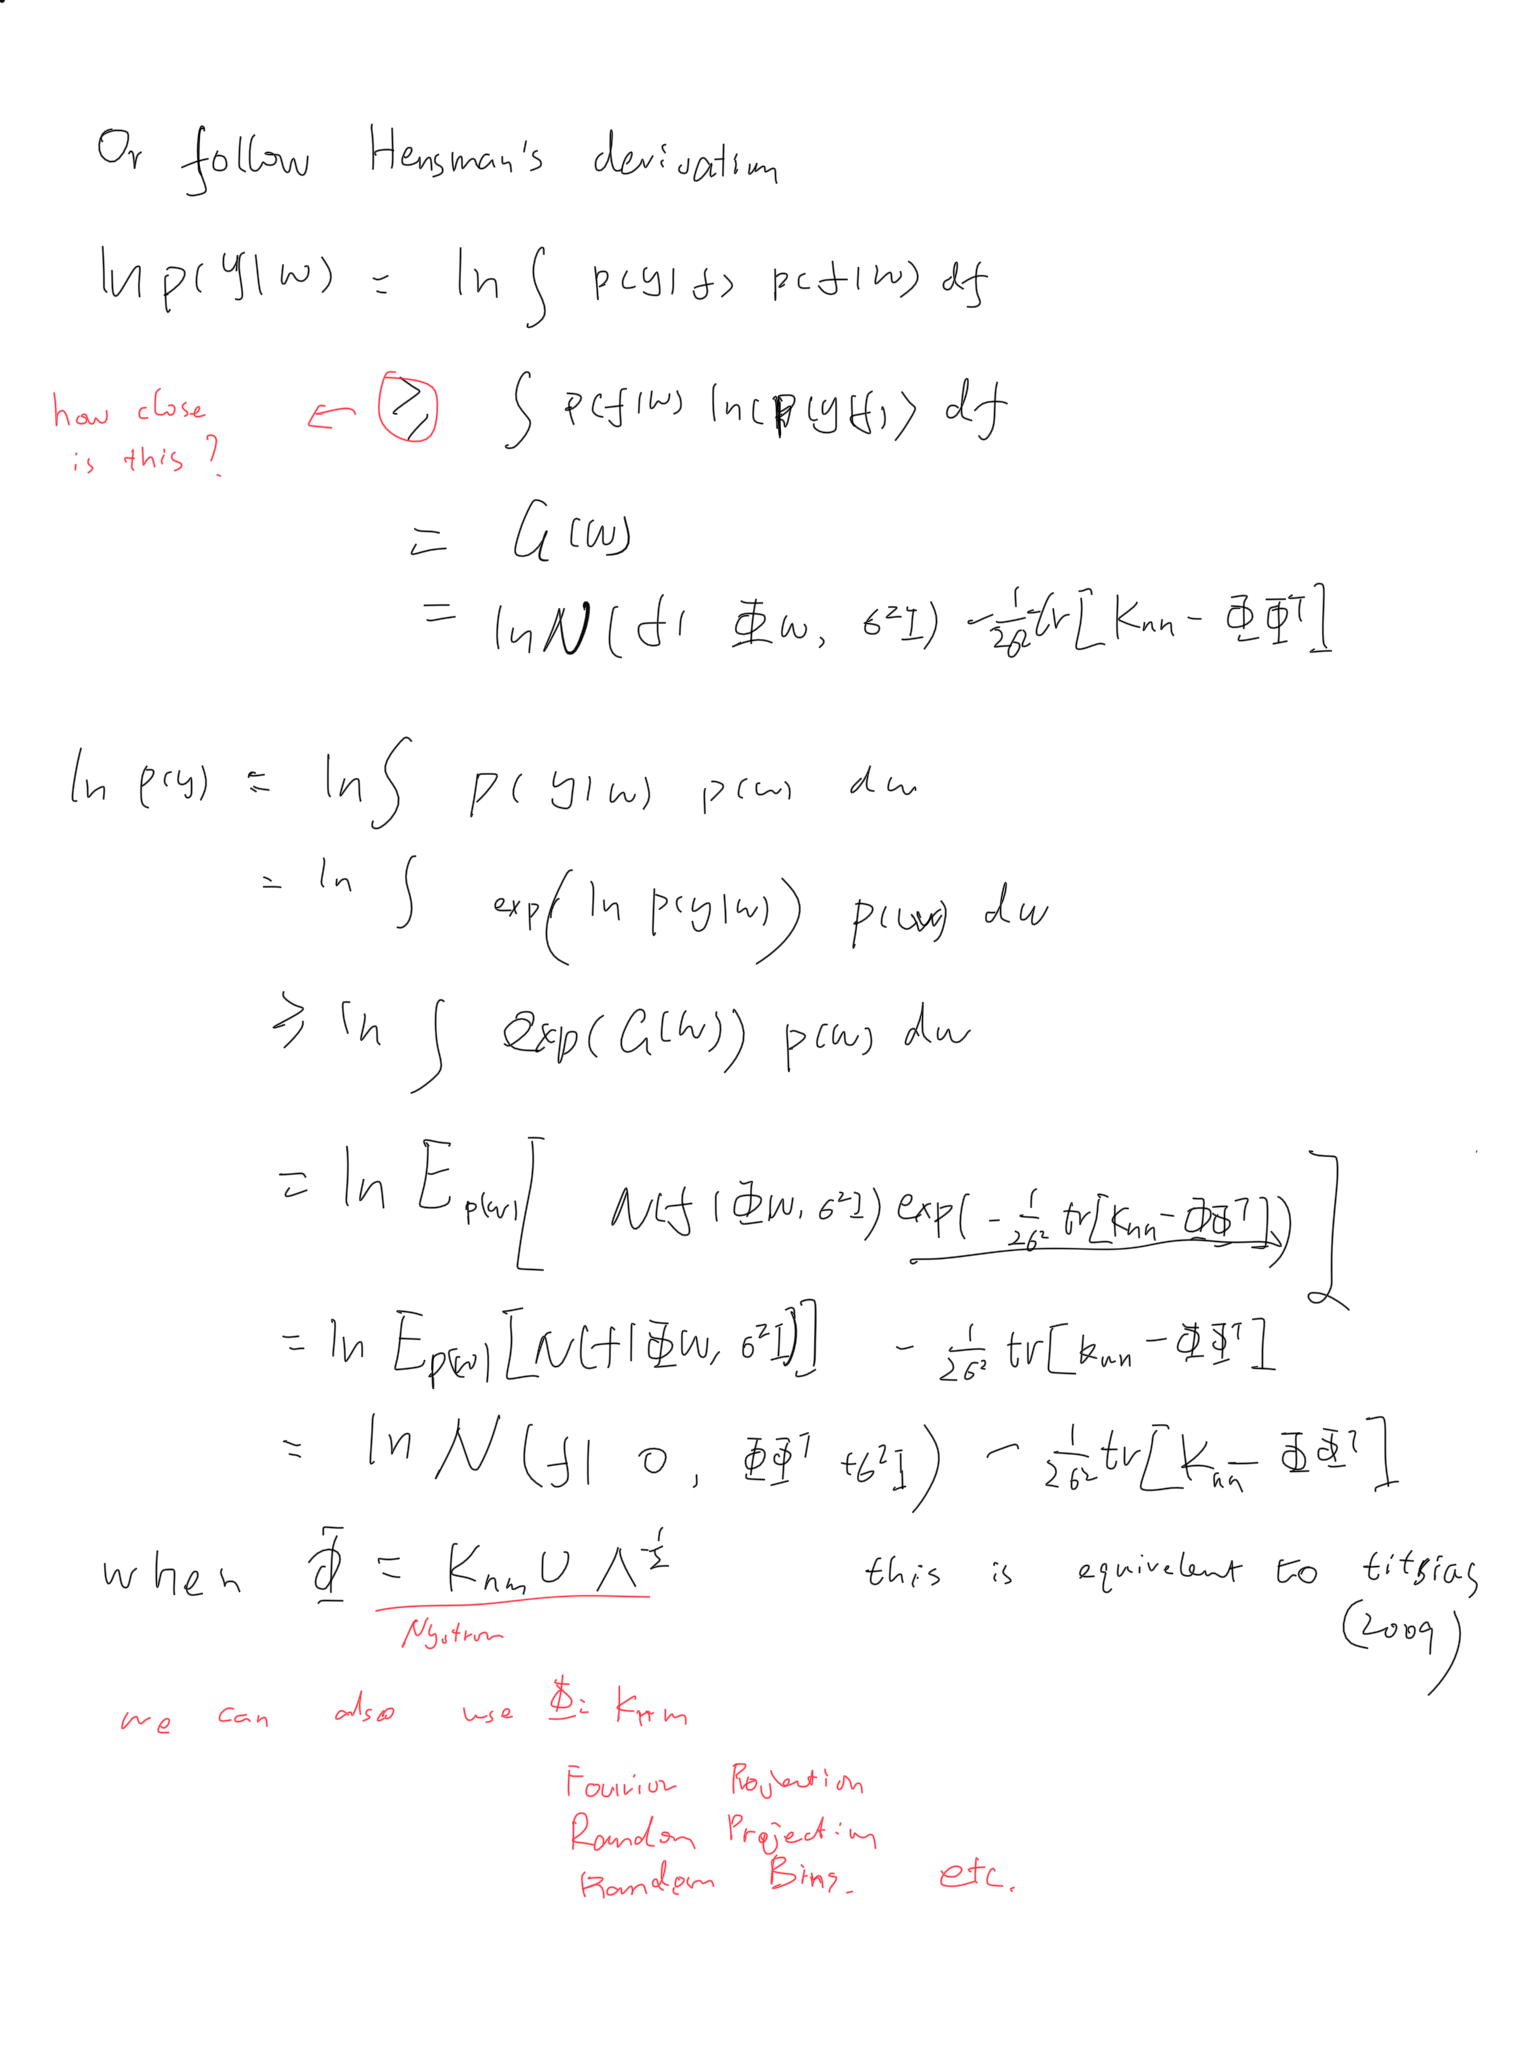 Or follow Hensman's derivation
ln p(y|w) = ln ∫ p(y|f) p(f|w) df
how close ← ≥ ∫ p(f|w) ln(p(y|f)) df
is this?
= G(w)
= ln N(f| Φw, σ²I) - 1/2σ² tr[Knn - ΦΦᵀ]
ln p(y) = ln ∫ p(y|w) p(w) dw
= ln ∫ exp(ln p(y|w)) p(w) dw
≥ ln ∫ exp(G(w)) p(w) dw
= ln E p(w) [ N(f|Φw, σ²I) exp(- 1/2σ² tr[Knn - ΦΦᵀ]) ]
= ln E p(w) [N(f|Φw, σ²I)] - 1/2σ² tr[Knn - ΦΦᵀ]
= ln N(f| 0, ΦΦᵀ + σ²I) - 1/2σ² tr[Knn - ΦΦᵀ]
when Φ = Knm U Λ^-½ this is equivelent to titsias
Nystrom (2009)
we can also use Φ: Knm
Fourier Projection
Random Projection
Random Bins. etc.